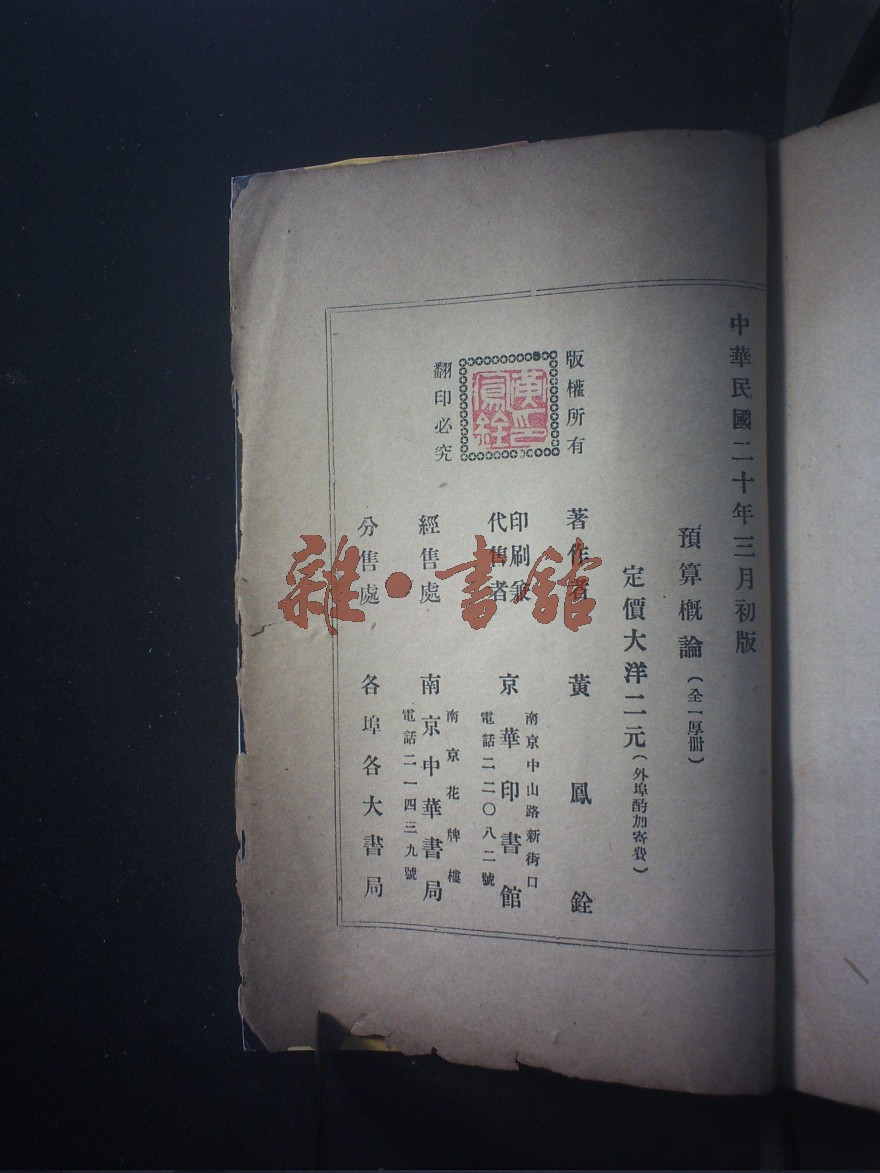 中華民國二十年三月初版
預算概論(全一厚冊)
定價大洋二元(外埠酌加寄費)
版權所有
黃鳳銓印
翻印必究
著作者 黃鳳銓
印刷兼
代售者
南京中山路新街口
京華印書館
電話二二〇八二號
經售處
南京花牌樓
南京中華書局
電話二一四三九號
分售處 各埠各大書局
雜·書館